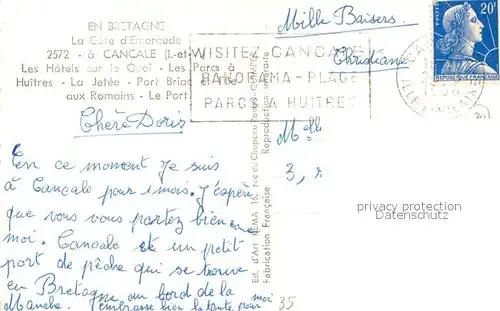 EN BRETAGNE
La Côte d'Emeraude
2572 - à CANCALE (I.-et-V
Les Hôtels sur le Quai - Les Parcs à
Huîtres - La Jetée - Port Briac et
aux Romains - Le Port
VISITEZ CANCALE
PANORAMA - PLAGE
PARCS A HUITRES
Mille Baisers
Christiane
POSTES
20F
REPUBLIQUE FRANÇAISE
Chère Doris
En ce moment je suis
à Cancale pour 1 mois. J'espère
que vous vous portez bien
moi. Cancale est un petit
port de pêche qui se trouve
en Bretagne au bord de la
Manche. J'embrasse bien la tante pour
moi
35
Melle
3, r
Ed. d'Art REMA 16, rue du Chapeau Rouge
Fabrication Française Reproduction
privacy protection
Datenschutz